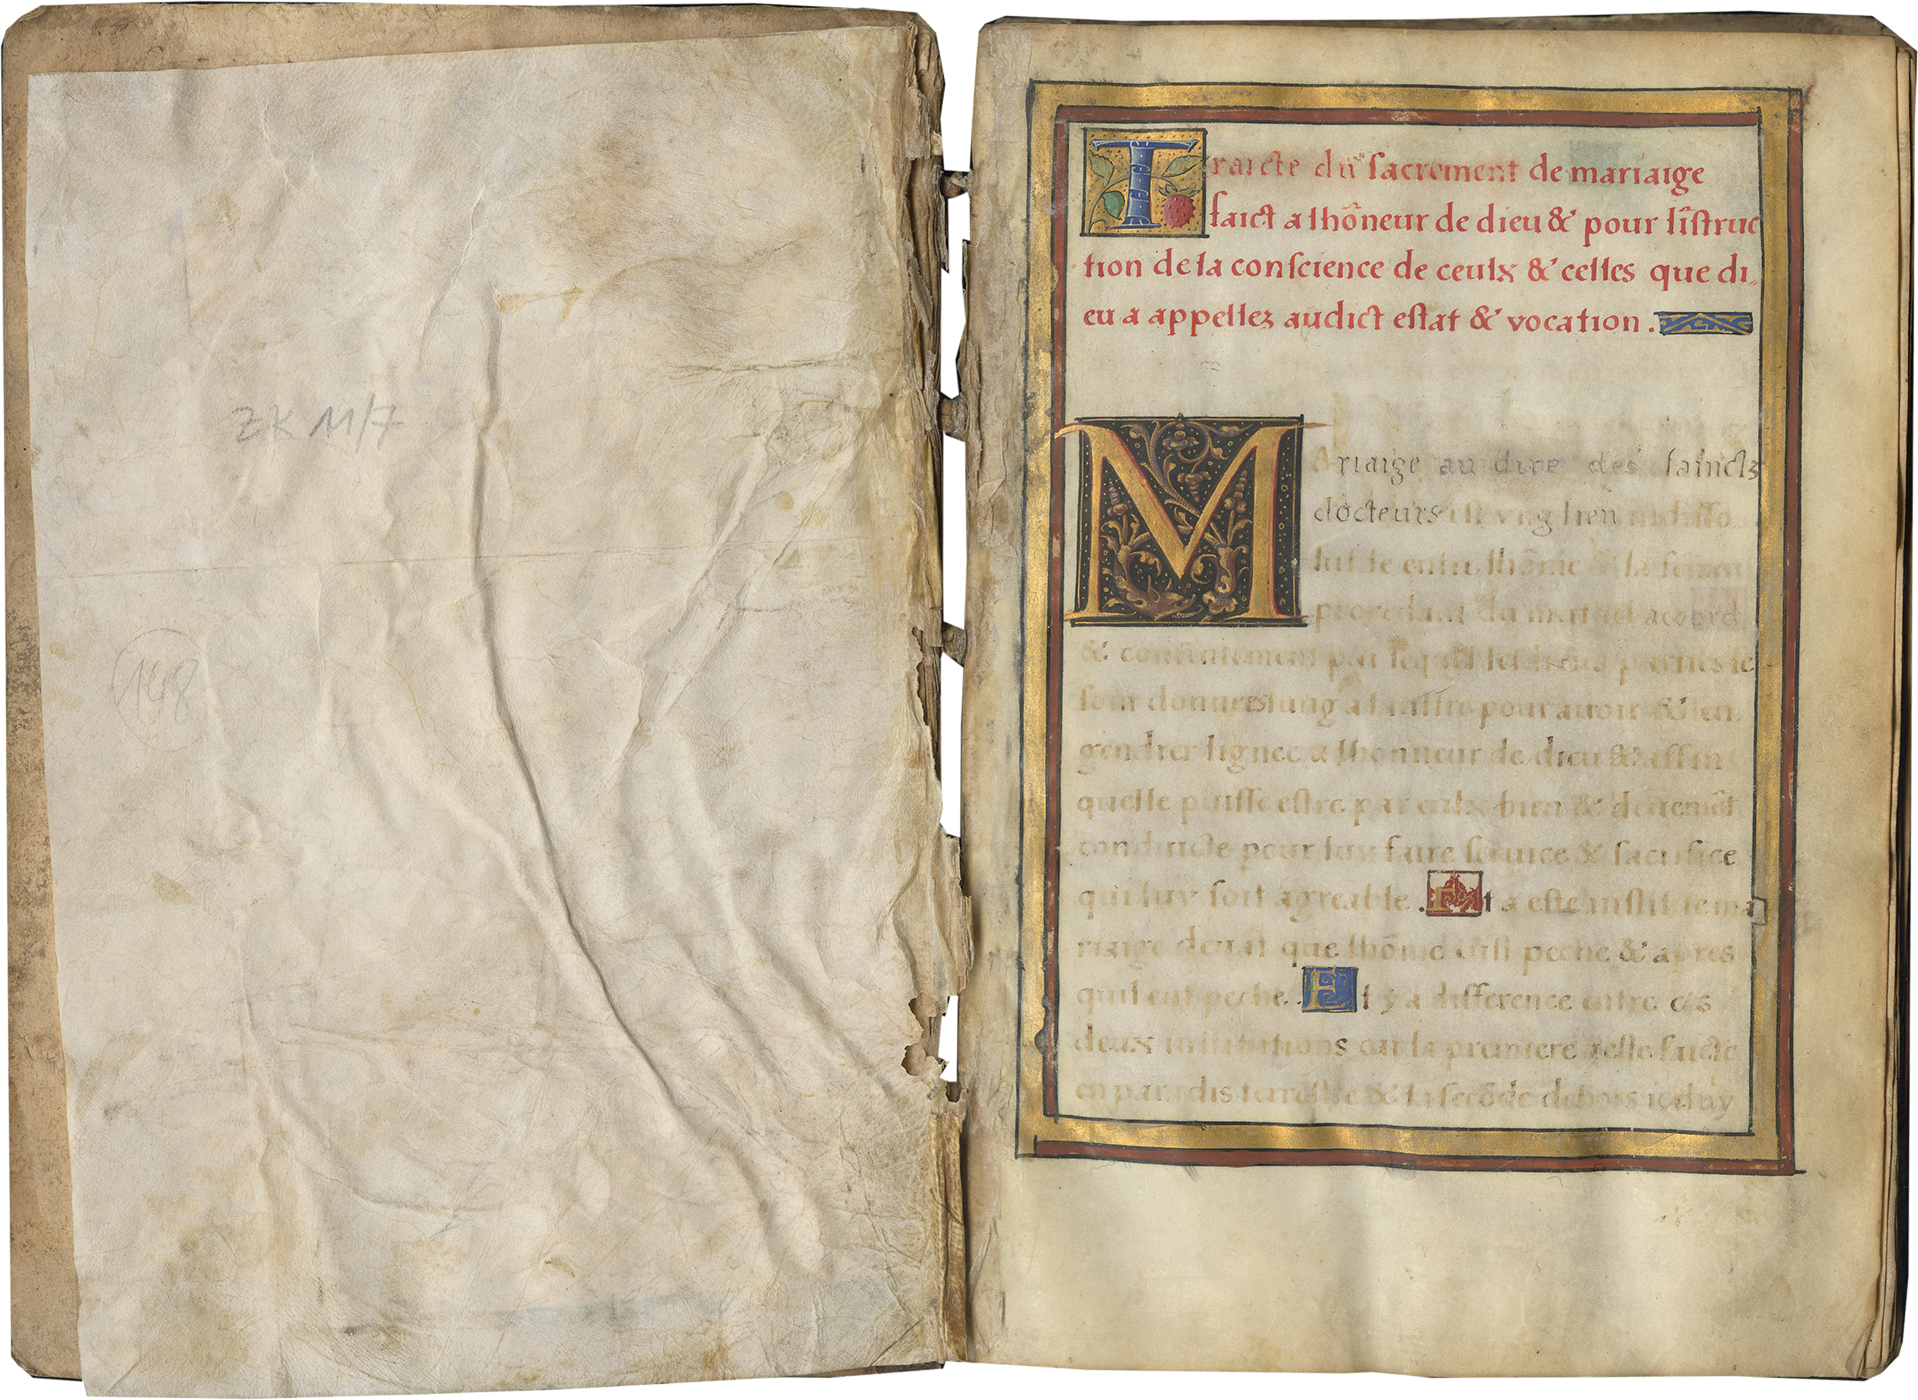 ZK 11/7
148
Traicte du sacrement de mariaige
faict a lhõneur de dieu & pour lĩstruc
tion de la conscience de ceulx & celles que di,,
eu a appellez audict estat & vocation.
Mariaige au dire des sainctz
docteurs est vng lien indisso
luble entre lhõme & la femme
procedant du mutuel accord
& consentement par lequel les deux parties se
sont donnees lung a laultre pour avoir & en
gendrer lignee a lhonneur de dieu & affin
quelle puisse estre par eulx bien & deuemẽt
conduicte pour luy faire seruice & sacrifice
qui luy soit agreable. Et a este institue ma
riaige deuãt que lhõme eust peche & apres
quil eut peche. Et y a difference entre ces
deux institutions car la premiere a este faicte
en paradis terrestre & la secõde dehors iceluy